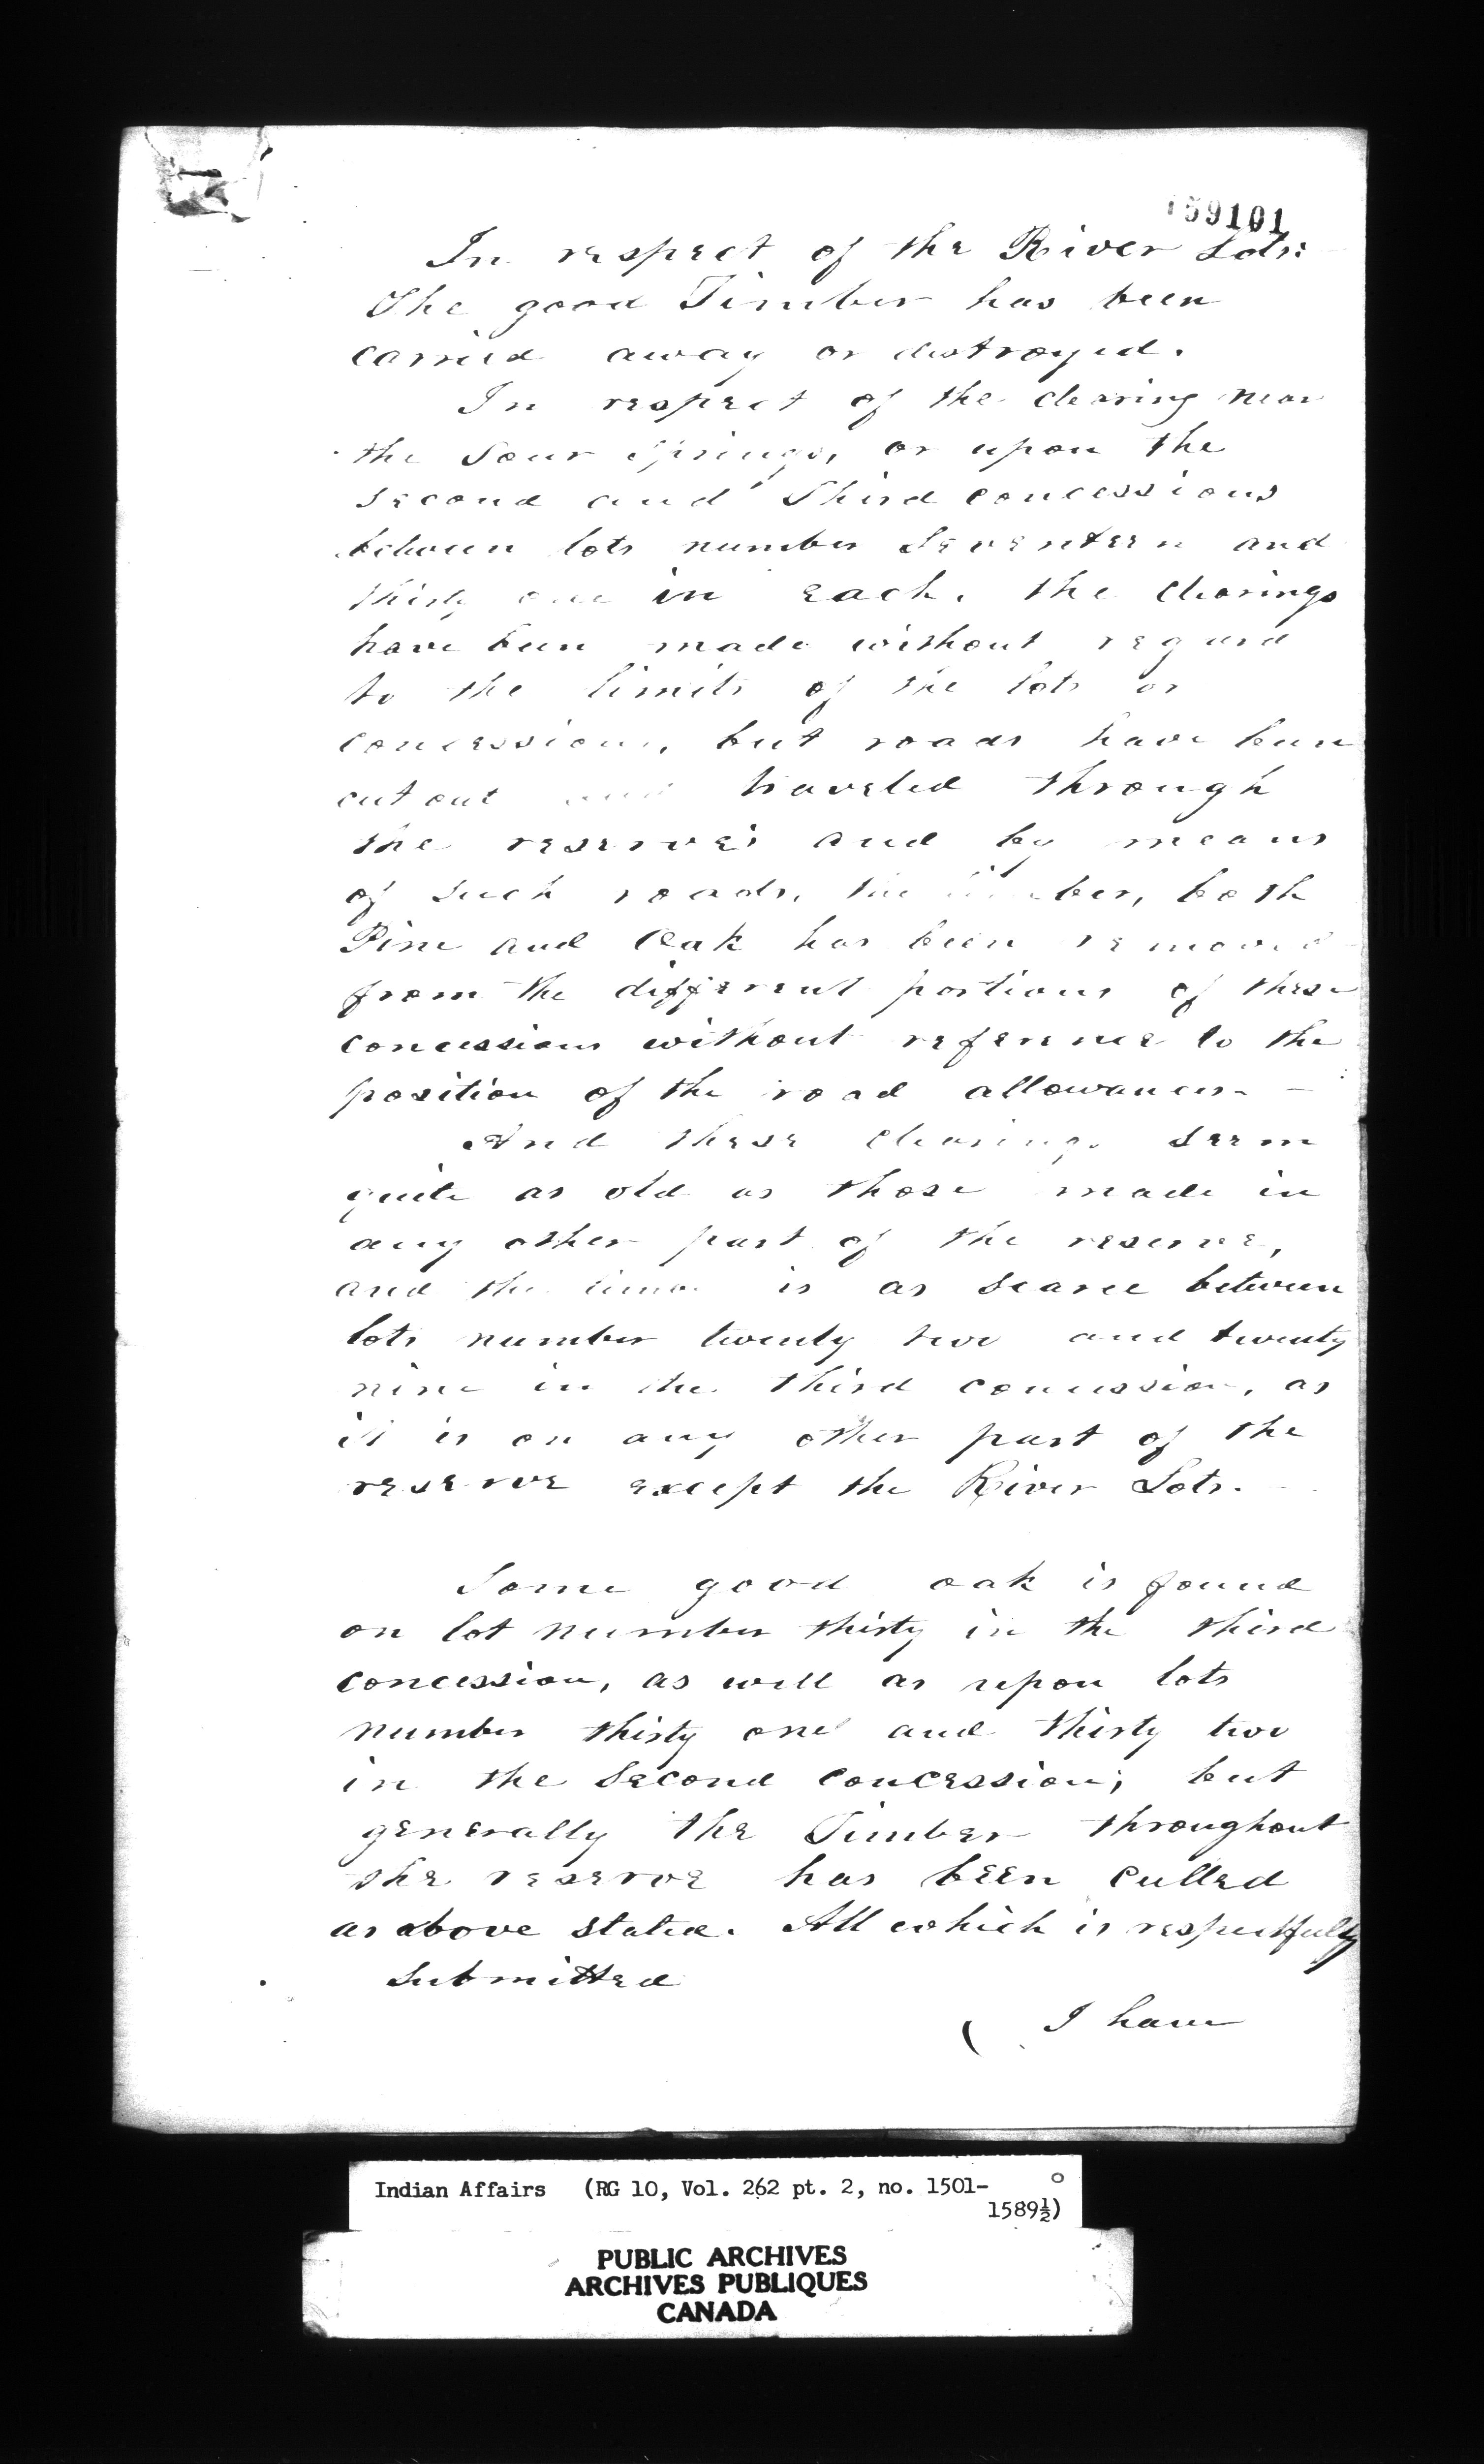 159101
In respect of the River Lots:
The good Timber has been
carried away or destroyed.
In respect of the clearing near
the Sour Springs, or upon the
second and Third concessions
between lots number Seventeen and
thirty one in each, the clearings
have been made without regard
to the limits of the lots or
concessions, but roads have been
cut out and traveled through
the reserves and by means
of such roads, the timber, both
Pine and Oak has been removed
from the different portions of these
concessions without reference to the
position of the road allowances. -
And these clearings seem
quite as old as those made in
any other part of the reserve,
and the is as scarce between
lots number twenty two and twenty
nine in the third concession, as
it is on any other part of the
reserve except the River Lots. -
Some good oak is found
on lot number thirty in the third
concession, as well as upon lots
number thirty one and thirty two
in the Second concession; but
generally the Timber throughout
the reserve has been culled
as above stated. All which is respectfully
Submitted
I have
Indian Affairs (RG 10, Vol. 262 pt. 2, no. 1501-
1589½)
PUBLIC ARCHIVES
ARCHIVES PUBLIQUES
CANADA